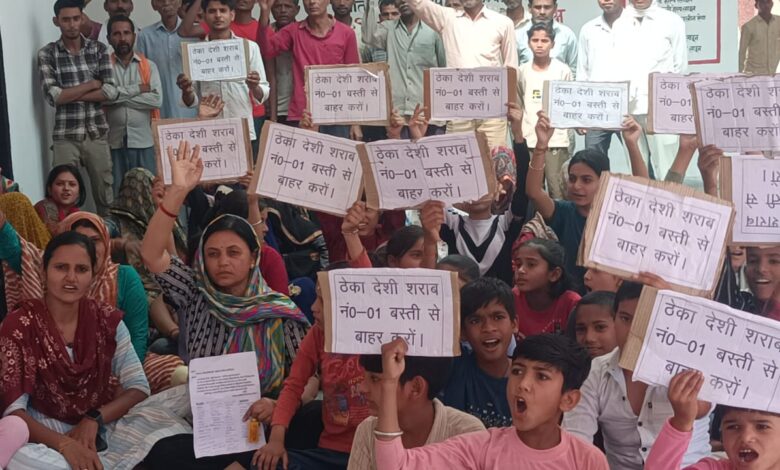 ठेका देशी शराब
नं0-01 बस्ती से
बाहर करों ।
ठेका देशी शराब
नं0-01 बस्ती से
बाहर करों ।
ठेका देशी शराब
नं0-01 बस्ती से
बाहर करों ।
ठेका देशी शराब
नं0-01 बस्ती से
बाहर करों ।
ठेका देशी शराब
नं0-01 बस्ती से
बाहर करों ।
ठेका देशी शराब
नं0-01 बस्ती से
बाहर करों ।
ठेका देशी शराब
नं0-01 बस्ती से
बाहर करों ।
ठेका देशी शराब
नं0-01 बस्ती से
बाहर करों ।
ठेका देशी शराब
नं0-01 बस्ती से
बाहर करों ।
ठेका देशी शराब
नं0-01 बस्ती से
बाहर करों ।
ठेका देशी शराब
नं0-01 बस्ती से
बाहर करों ।
ठेका देशी शराब
नं0-01 बस्ती से
बाहर करों ।